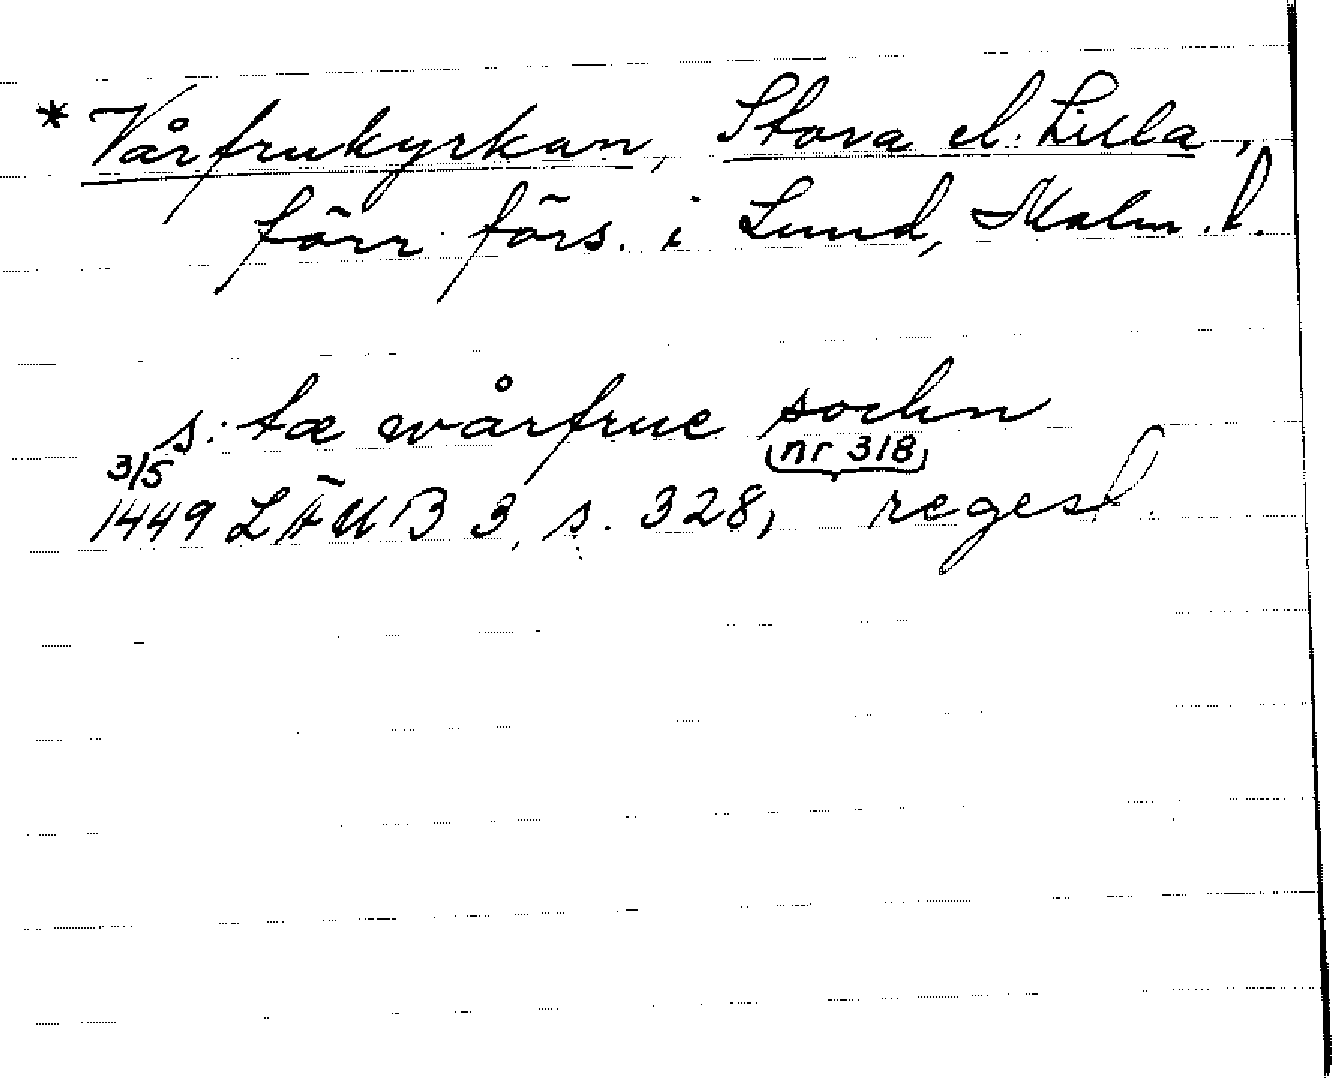 * Vårfrukyrkan, Stora el. Lilla,
förr förs. i Lund, Malm. l.
s: tæ wårfrue sochn
3/5 nr 318
1449 LÄUB 3, s. 328, regest.